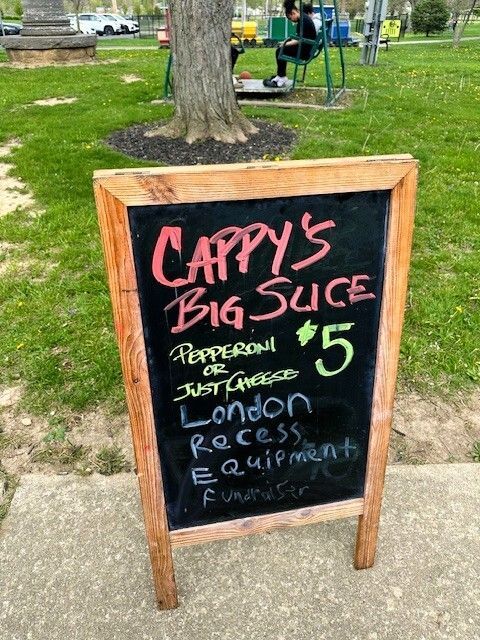 CAPPY'S
BIG SLICE
PEPPERONI
OR
JUST CHEESE
$5
London
Recess
Equipment
Fundraiser